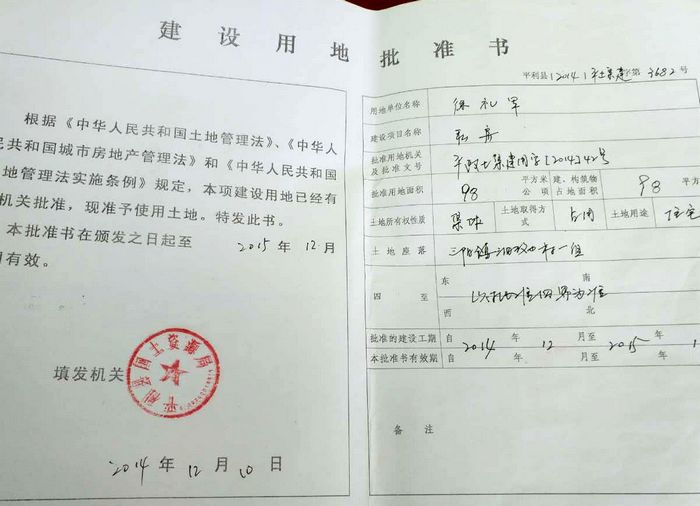 建设用地批准书
根据《中华人民共和国土地管理法》、《中华人
民共和国城市房地产管理法》和《中华人民共和国
地管理法实施条例》规定，本项建设用地已经有
机关批准，现准予使用土地。特发此书。
本批准书在颁发之日起至 2015 年 12 月
有效。
填发机关
平利县国土资源局
2014 年 12 月 10 日
平利县[2014]平土集建字第 3682 号
用地单位名称 徐礼军
建设项目名称
批准用地机关及批准文号 平政土集建用字[2014]42号
批准用地面积 98 平方米 公顷 建、构筑物占地面积 98 平方
土地所有权性质 集体 土地取得方式 占用 土地用途 住宅
土地座落 三阳镇 村一组
四至 东 南 西 北 以 四界为准
批准的建设工期 自 2014 年 12 月至 2015 年 1
本批准书有效期 自 年 月至 年
备注